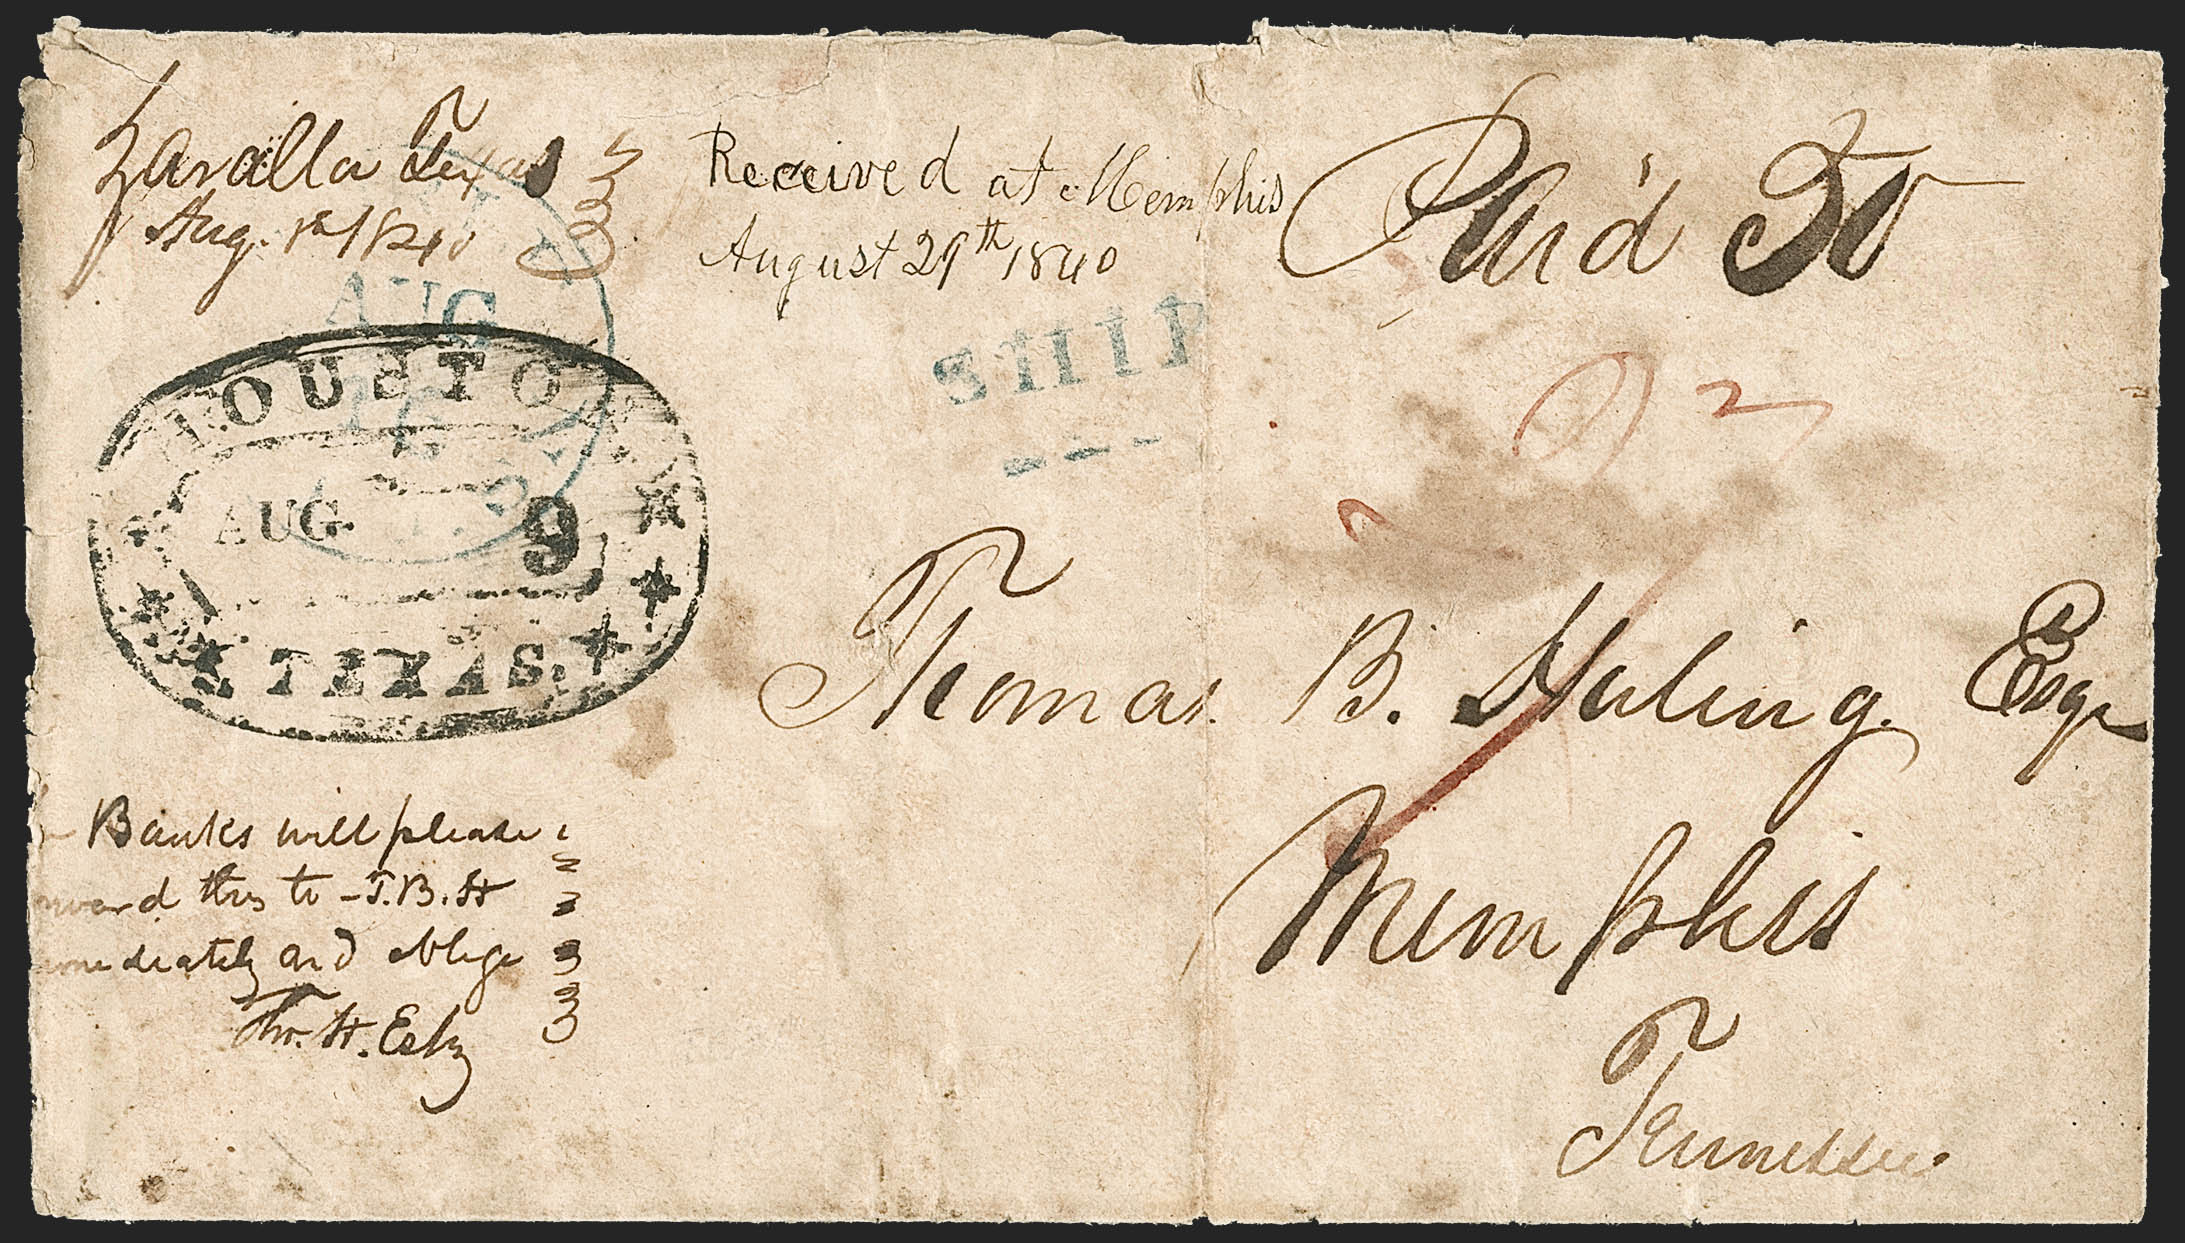 Zavalla Texas
Aug. 1st 1840
Received at Memphis
August 29th 1840
Paid 50
AUG
SHIP
2
HOUSTON
AUG. 9
TEXAS.
Thomas. B. Huling. Esqr
Memphis
Tennessee.
Banks will please
this to - T.B.H
and oblige
Tho. H. Esby